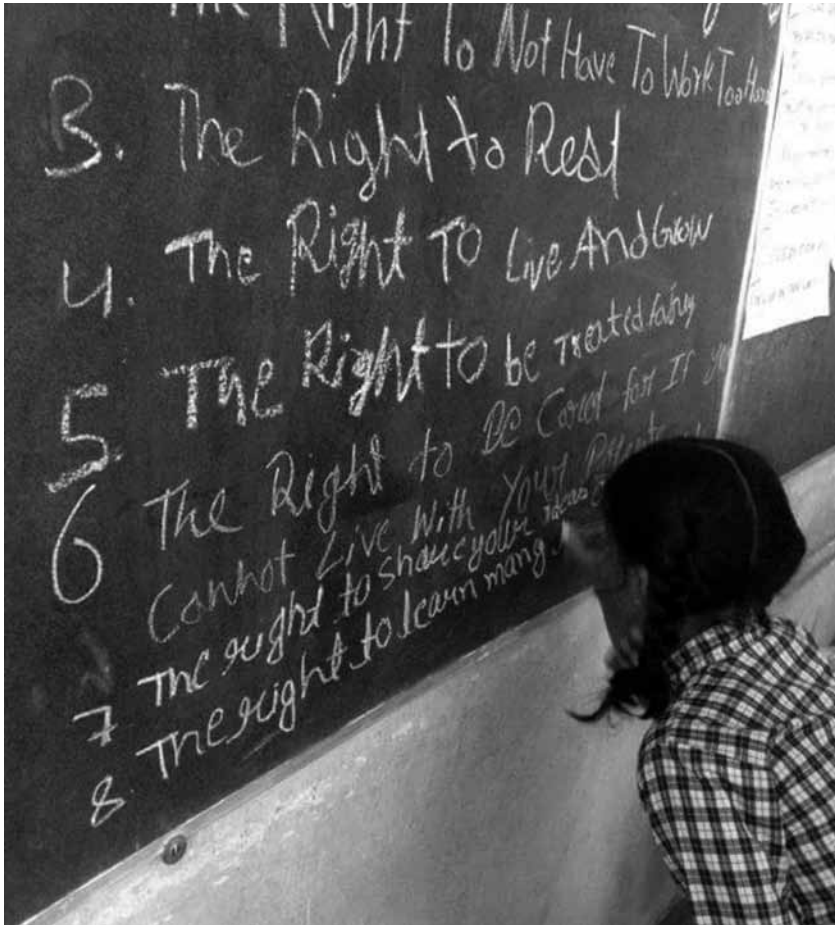 The Right To Not Have To Work Too Hard
3. The Right to Rest
4. The Right To Live And Grow
5 The Right to be Treated fairly
6 The Right to Be Cared for If you
Cannot Live With Your
7 The right to share your Ideas
8. The right to learn many